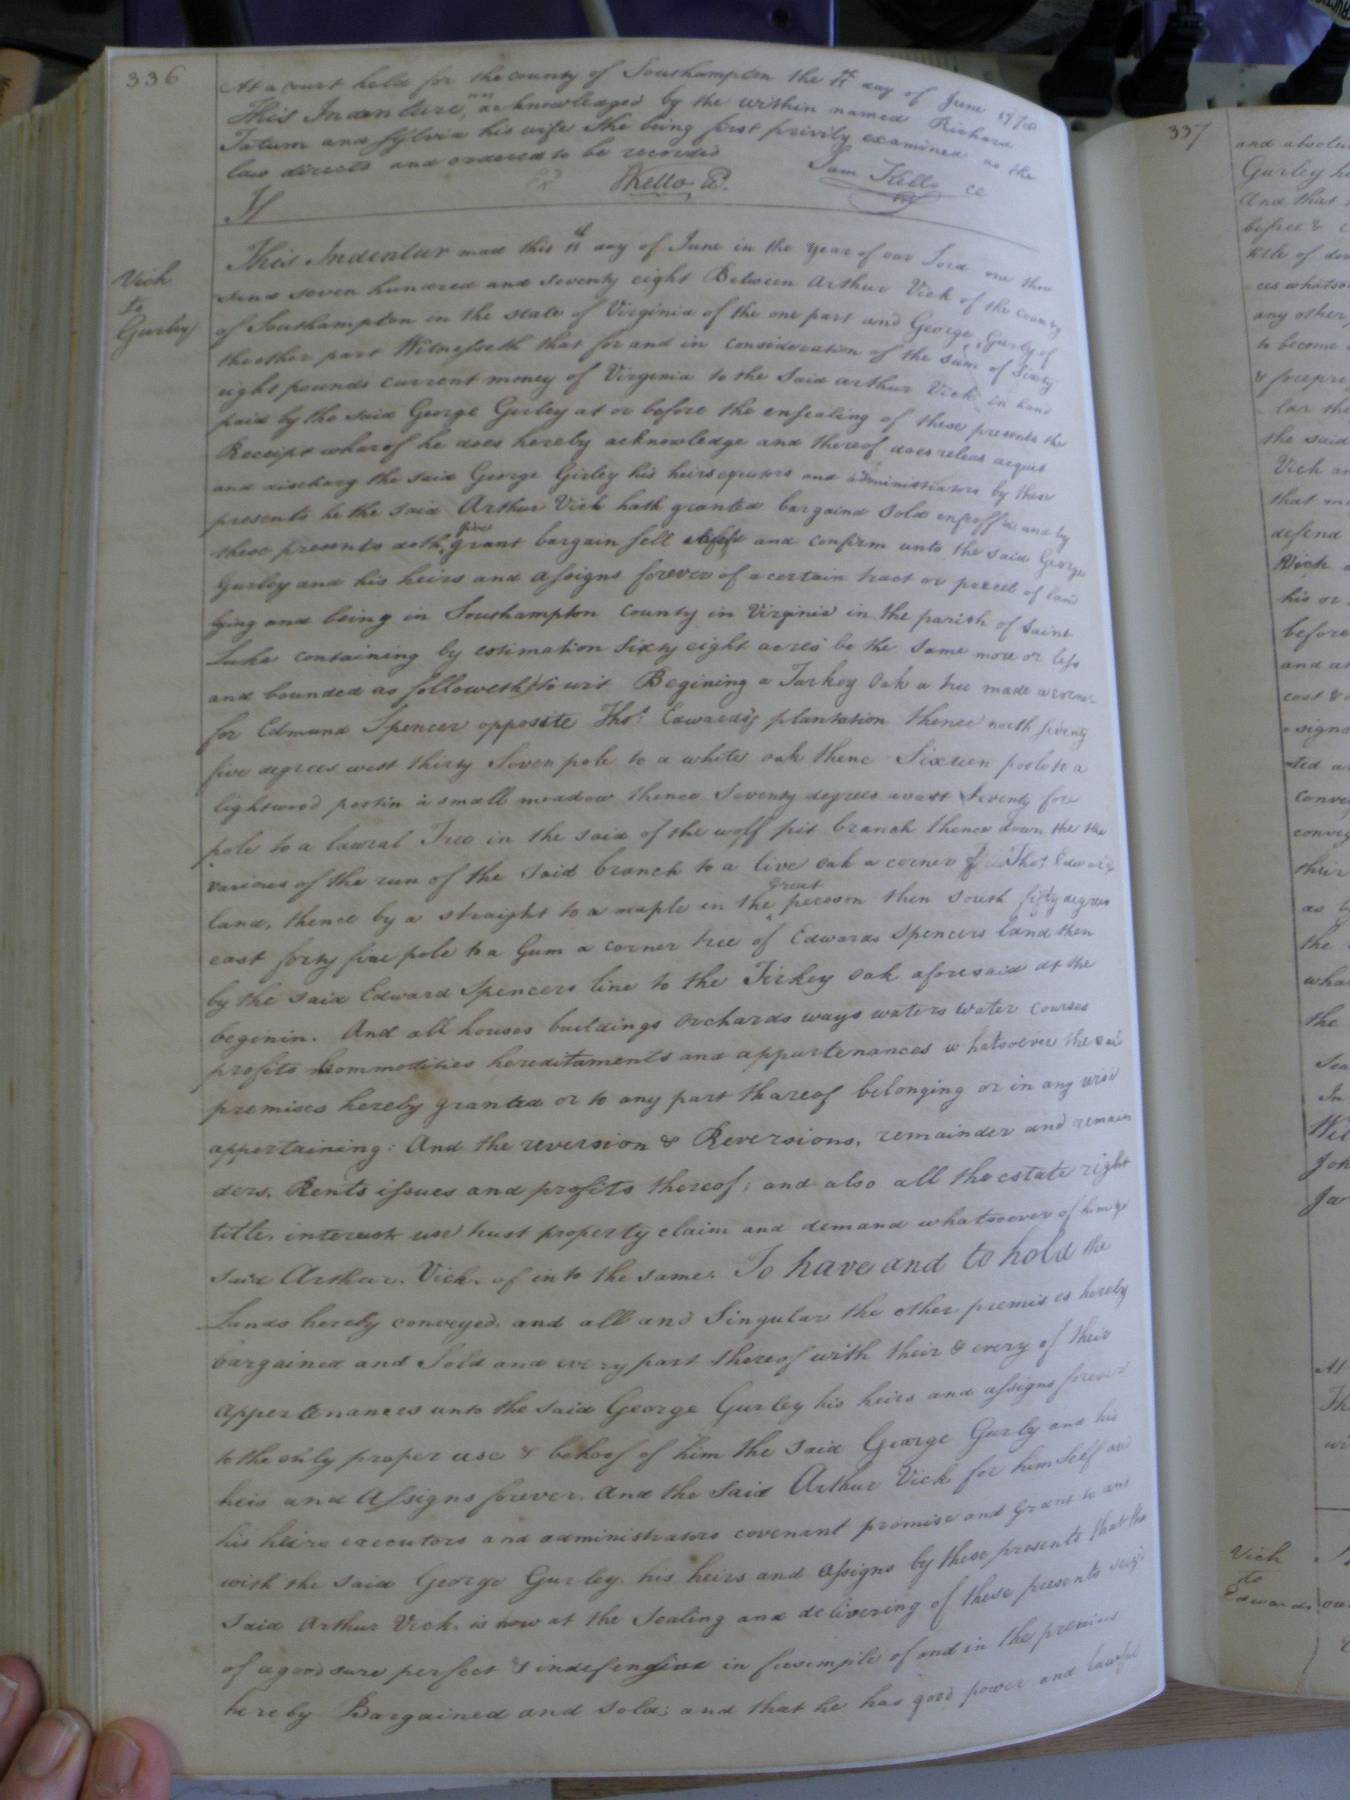 336
At a court held for the county of Southampton the 11th day of June 1778
This Indenture was acknowledged by the within named Richard
Tatum and Sylvia his wife She being first privily examined as the
law directs and ordered to be recorded
Sam Kello CC
Vick
to
Gurley
This Indentur mad this 11th day of June in the year of our Lord one thou
sand seven hundred and seventy eight Between Arthur Vick of the county
of Southampton in the state of Virginia of the one part and George Gurley of
the other part Witnesseth that for and in consideration of the sum of Sixty
eight pounds current money of Virginia to the Said arthur Vick in hand
paid by the said George Gurley at or before the ensealing of these presents the
Receipt wharof he does hereby acknowledge and thereof does releas acquit
and discharg the said George Girley his heirs and administrators by these
presents he the said Arthur Vick hath granted bargaind Sold and by
these presents doth give grant bargain sell and confirm unto the said George
Gurley and his heirs and assigns forever of a certain tract or parcel of land
lying and being in Southampton County in Virginia in the parish of Saint
Luke containing by estimation Sixty eight acres be the Same more or less
and bounded as followeth to wit Begining a Turkey Oak a tree made a corner
for Edmund Spencer opposite Thos. Edwards's plantation thence north seventy
five degrees west thirty Seven pole to a white oak thenc Sixteen pole to a
lightwood post in a small meadow thence Seventy degrees Seventy fore
pole to a lawral Tree in the said of the wolf pit branch thence down the the
various of the run of the Said branch to a live oak a corner Thos. Edwards
land, thence by a straight to a maple in the great pecoson then south fifty degrees
east forty five pole to a Gum a corner tree of Edwards Spencers land then
by the said Edward Spencers line to the Tirkey oak aforesaid at the
beginin. And all houses buildings Orchards ways waters water courses
profits commodities hereditaments and appurtenances whatsoever the said
premises hereby granted or to any part thareof belonging or in any wise
appertaining: And the reversion & Reversions, remainder and remain
ders. Rents issues and profits thereof; and also all the estate right
title, interest use trust property claim and demand whatsoever of him
said Arthur. Vick. of in to the same. To have and to hold the
Lands hereby conveyed. and all and Singular the other premises hereby
bargained and Sold and every part thereof with their & every of their
appertenances unto the said George Gurley his heirs and assigns forever
to the only proper use & behoof of him the said George Gurly and his
heis and Assigns forever. And the Said Arthur Vick for himself and
his heirs executors and administrators covenant promise and Grant to and
with the said George Gurley. his heirs and assigns by these presents that the
Said Arthur Vick. is now at the Sealing and delivering of these presents seiz'd
of a good sure perfect & in feesimple of and in the premises
hereby Bargained and Sold; and that he has good power and lawful
337
Gurley
And that
title of
any other
to become
the said
Vick
that
defend
Vick
his or
before
signs
conve
their
the
the
In
Vick
to
Edwards